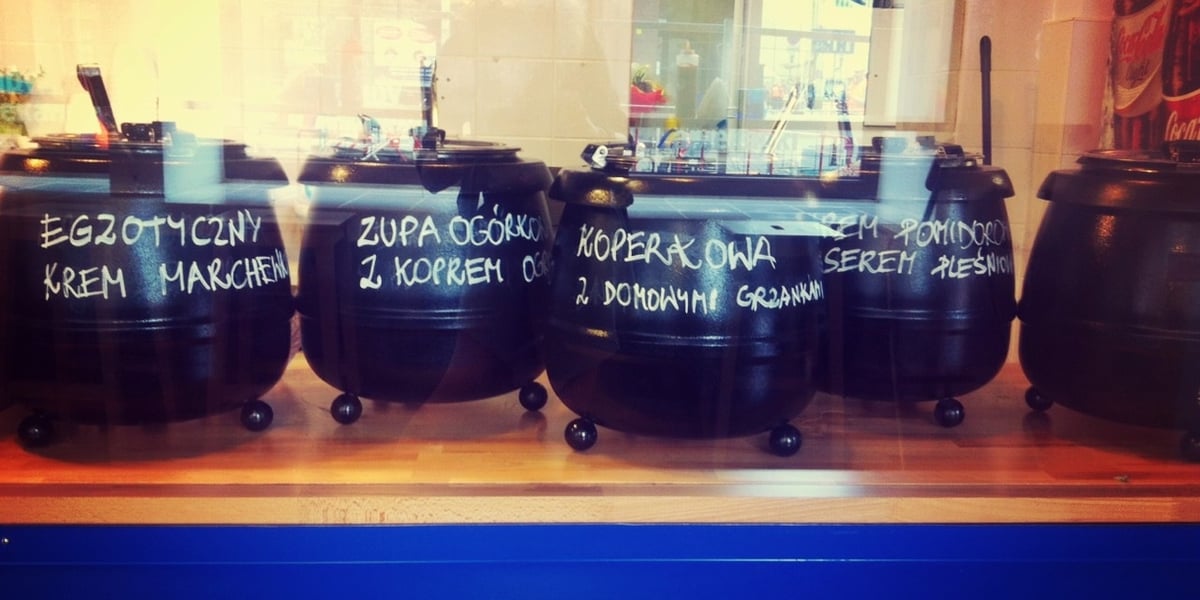 EGZOTYCZNY
KREM MARCHEWK
ZUPA OGÓRKO
Z KOPREM OG
KOPERKOWA
Z DOMOWYMI GRZANKAMI
REM POMIDORO
SEREM PLEŚNIOW
Coca